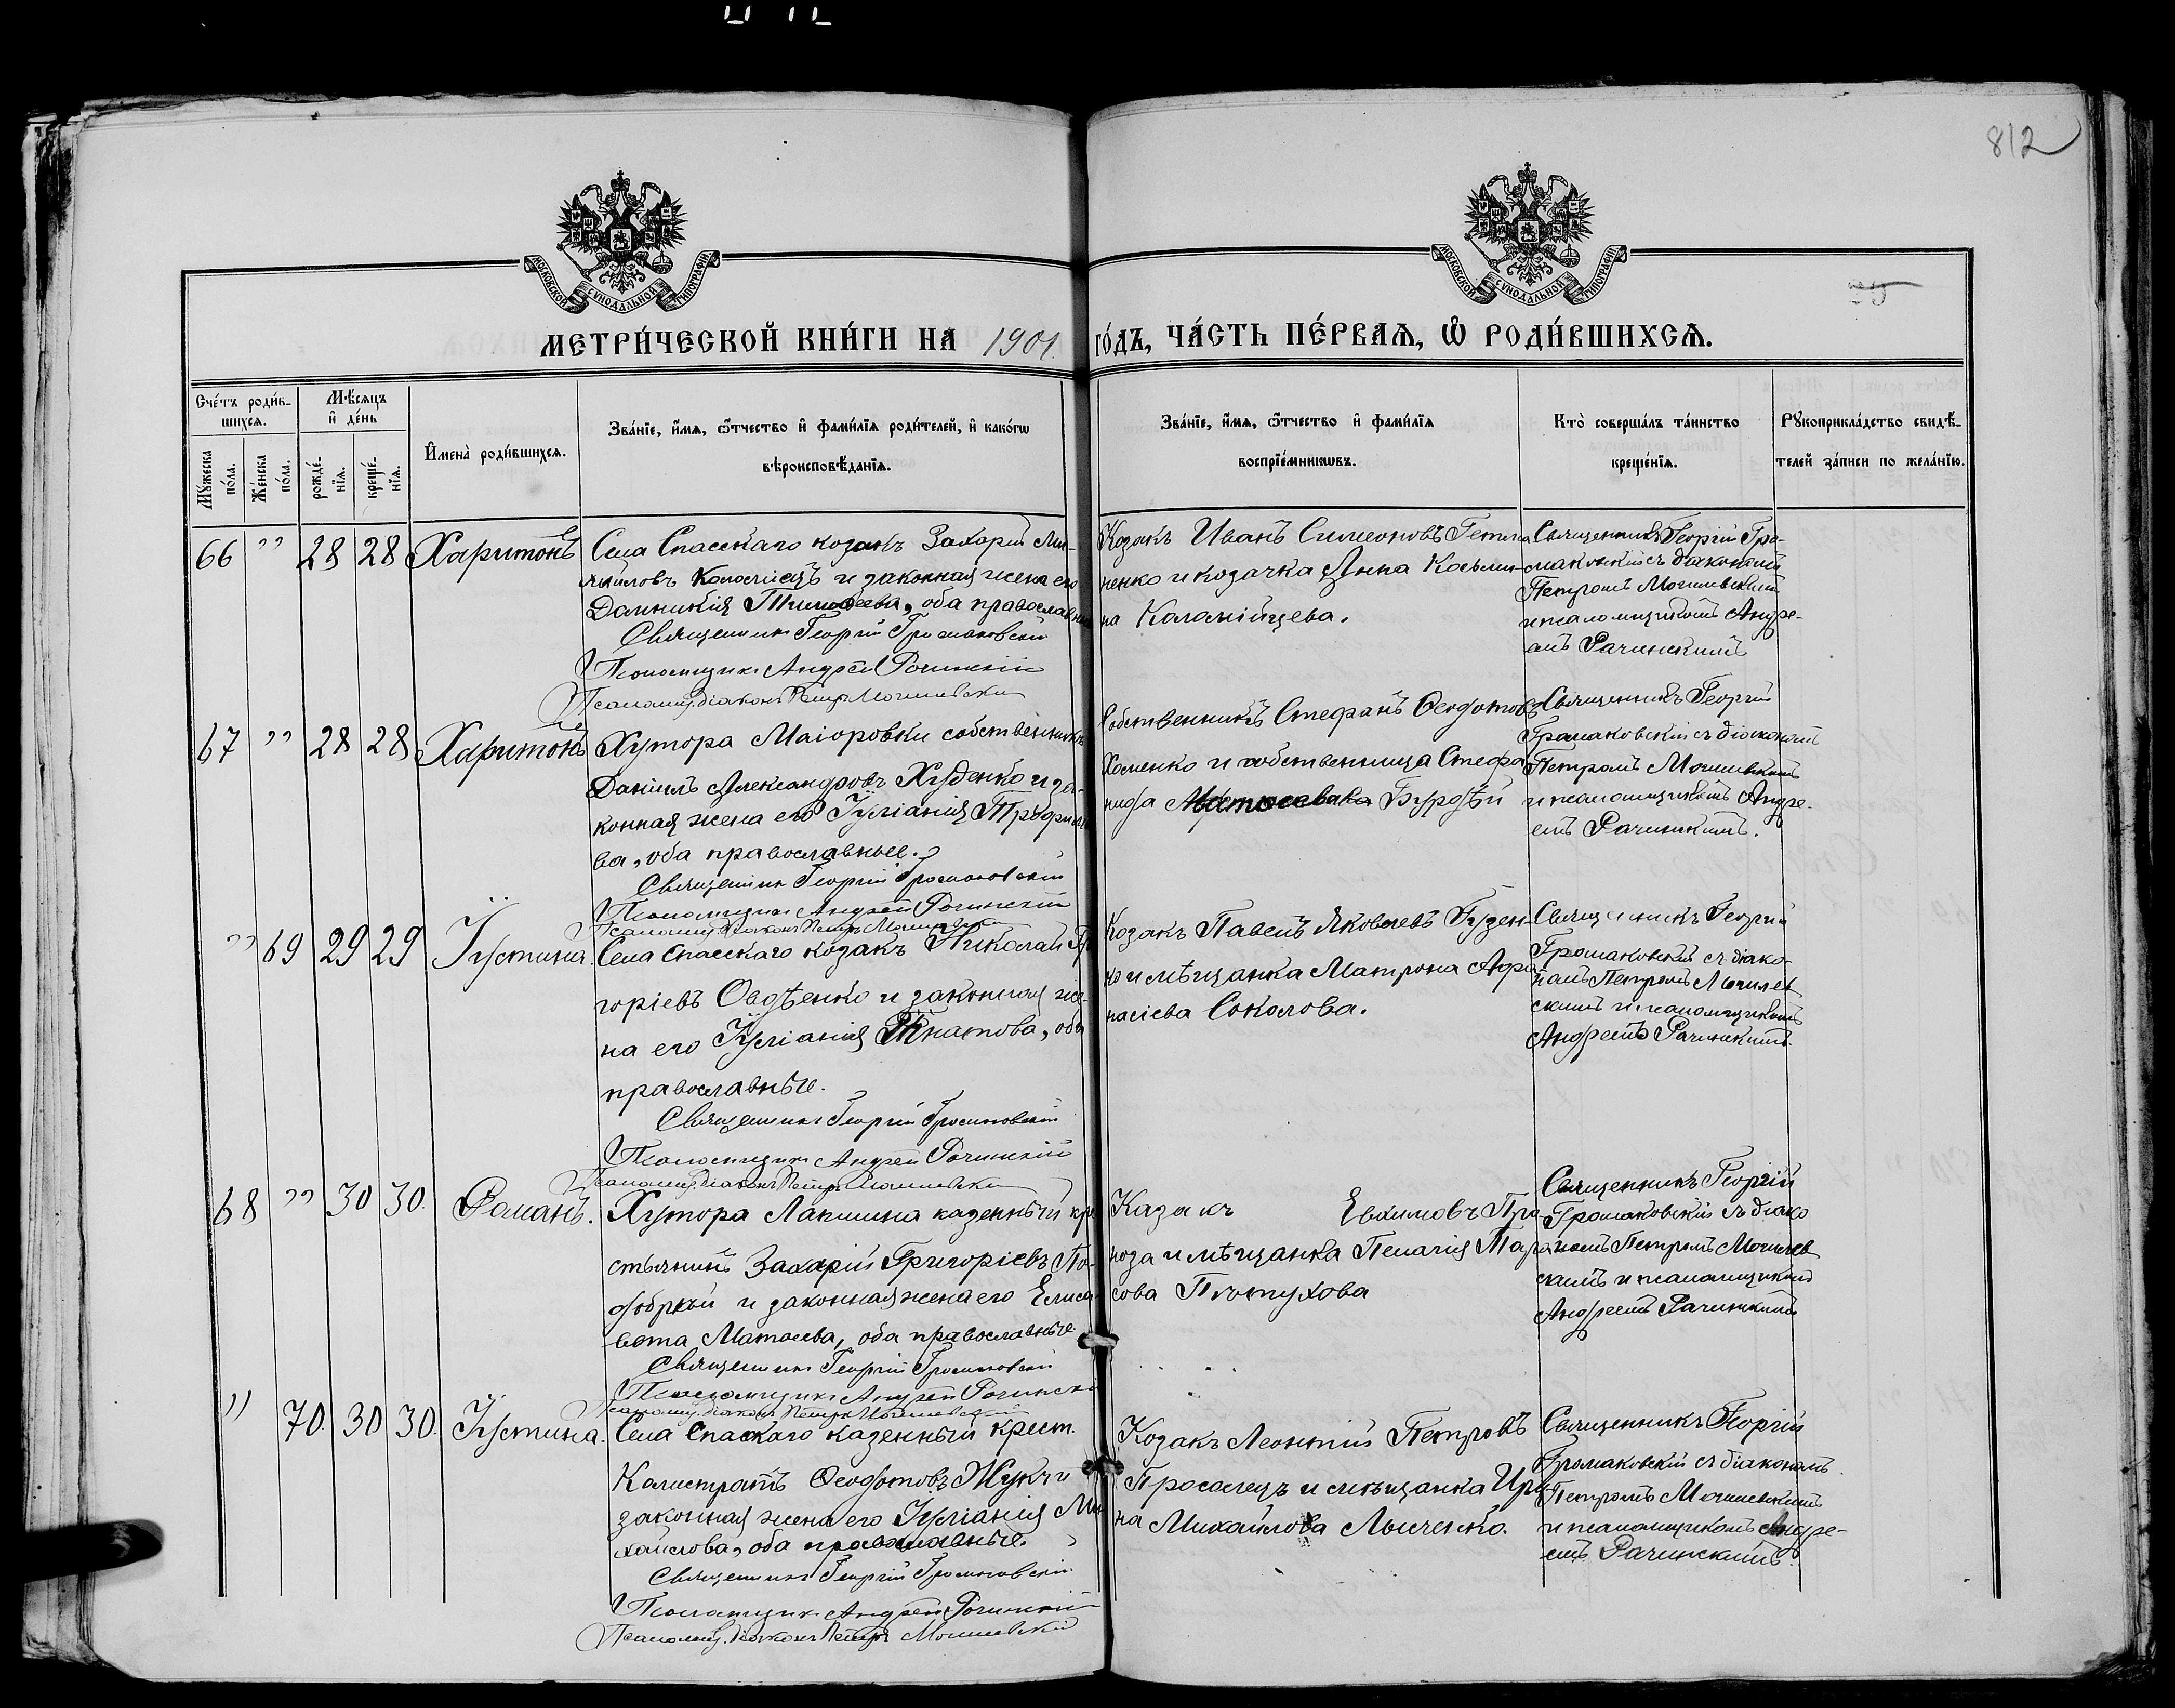 812
МОСКОВСКОЙ СѴНОДАЛЬНОЙ ТИПОГРАФІИ
МОСКОВСКОЙ СѴНОДАЛЬНОЙ ТИПОГРАФІИ
МЕТРИ́ЧЕСКОЙ КНИ́ГИ НА 1901. ГО́ДЪ, ЧА́СТЬ ПЕ́РВАѦ, Ѽ РОДИ́ВШИХСѦ.
Сче́тъ роди́в-
шихсѧ.
Му́жеска по́ла.
Же́нска по́ла.
Мѣ́сѧцъ
и де́нь
рожде́-
нїѧ.
креще́-
нїѧ.
И҆мена̀ роди́вшихсѧ.
Зва́нїе, и҆́мѧ, ѻ҆́тчество и҆ фами́лїѧ роди́телей, и҆ како́гѡ
вѣроисповѣ́данїѧ.
Зва́нїе, и҆́мѧ, ѻ҆́тчество и҆ фами́лїѧ
воспрїе́мникѡвъ.
Кто̀ соверша́лъ та́инство
креще́нїѧ.
Рꙋкоприкла́дство свидѣ́-
телей за́писи по жела́нїю.
66 " 28 28 Харитонъ
Села Спасскаго козакъ Захарій Ми-
хайловъ Коломіецъ и законная жена его
Домникія Тимофеева, оба православные
Священник Георгій Громаковскій
Псаломщик Андрей Рачинскій
Псаломщ. діаконъ Петръ Могилевскій
Козакъ Иванъ Симеоновъ Гетма
ненко и козачка Анна Косьми-
на Коломійцева.
Священникъ Георгій Гро-
маковскій съ діакономъ
Петромъ Могилевскимъ
и псаломщикомъ Андре-
емъ Рачинскимъ
67 " 28 28 Харитонъ
Хутора Маіоровки собственникъ
Даніилъ Александровъ Худенко и за-
конная жена его Іуліанія Трофимо
ва, оба православные.
Священник Георгій Громаковскій
Псаломщик Андрей Рачинскій
Псаломщ. діаконъ Петръ Могилевскій
Собственникъ Стефанъ Ѳеодотовъ
Хоменко и собственница Стефа
нида Бурдѣй
Священникъ Георгій
Громаковскій съ діакономъ
Петромъ Могилевскимъ
и псаломщикомъ Андре-
емъ Рачинскимъ.
" 69 29 29 Іустина.
Села Спасскаго козакъ Николай Гри
горіевъ Овдѣенко и законная же-
на его Іуліанія Игнатова, оба
православные.
Священник Георгій Громаковскій
Псаломщик Андрей Рачинскій
Псаломщ. діаконъ Петръ Могилевскій
Козакъ Павелъ Яковлевъ Гузен-
ко и мѣщанка Матрона Афа-
насіева Соколова.
Священникъ Георгій
Громаковскій съ діако-
номъ Петромъ Могилев
скимъ и псаломщикомъ
Андреемъ Рачинскимъ.
68 " 30 30. Романъ.
Хутора Лакшина казенный кре
стьянинъ Захарій Григоріевъ По-
добрый и законная жена его Елиса-
вета Матѳеева, оба православные.
Священник Георгій Громаковскій
Псаломщик Андрей Рачинскій
Псаломщ. діаконъ Петръ Могилевскій
Казакъ Евхимовъ Про-
ноза и мѣщанка Пелагія Тара
сова Пѣтухова
Священникъ Георгій
Громаковскій съ діако
номъ Петромъ Могилев
скимъ и псаломщикомъ
Андреемъ Рачинскимъ
" 70. 30 30. Іустина.
Села Спасскаго казенный крест.
Калистратъ Ѳеодотовъ Жукъ и
законная жена его Іуліанія Ми
хайлова, оба православные.
Священник Георгій Громаковскій
Псаломщик Андрей Рачинскій
Псаломщ. діаконъ Петръ Могилевскій
Козакъ Леонтій Петровъ
Просалецъ и мѣщанка Ири
на Михайлова Лысенко.
Священникъ Георгій
Громаковскій съ діакономъ
Петромъ Могилевскимъ
и псаломщикомъ Андре-
емъ Рачинскимъ.